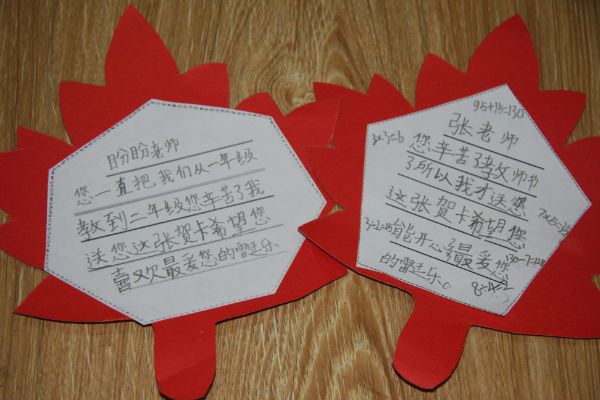 盼盼老师
您一直把我们从一年级
教到二年级您辛苦了我
送您这张贺卡希望您
喜欢最爱您的雷廷乐
95+35=130
张老师
您辛苦了教师节
了所以我才送您
这张贺卡希望您
7x5=35
能开心最爱您
130-7=123
的雷廷乐。